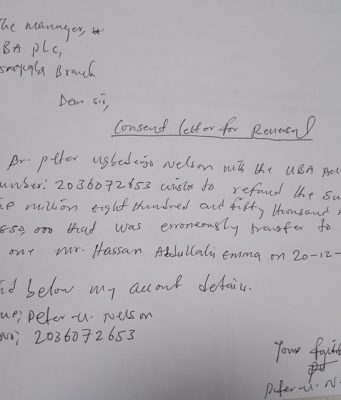 The manager,
BA plc,
Branch
Dear sir,
Consent letter for Reversal
Dr. peter ugbedeojo Nelson with the UBA Acc
umber: 2036072653 wishs to refund the Su
million eight Hundred and fifty thousand
850,000 that was erroneously transfer to
one mr. Hassan Abdullahi Emma on 20-12-
below my account details.
me; Peter-U. Nelson
No; 2036072653
Yours faith
peter-U. N